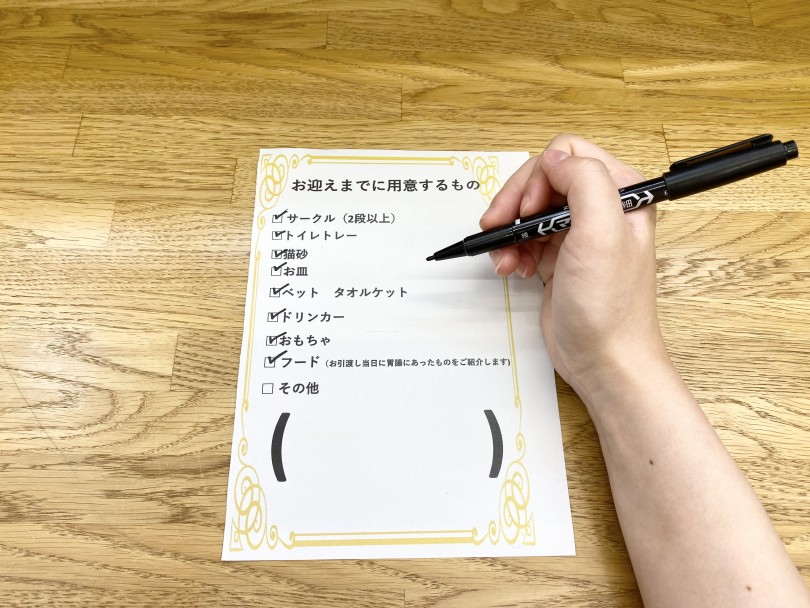 お迎えまでに用意するもの
☑サークル（2段以上）
☑トイレトレー
☑猫砂
☑お皿
☑ベット　タオルケット
☑ドリンカー
☑おもちゃ
☑フード（お引渡し当日に胃腸にあったものをご紹介します)
☐その他
(　　　)